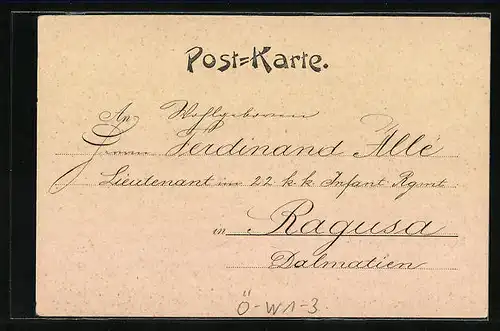 Post=Karte.
An Wohlgeboren
Herrn Ferdinand Allé
Lieutenant im 22 k k Infant Rgmt
in Ragusa
Dalmatien
Ö-W1-3